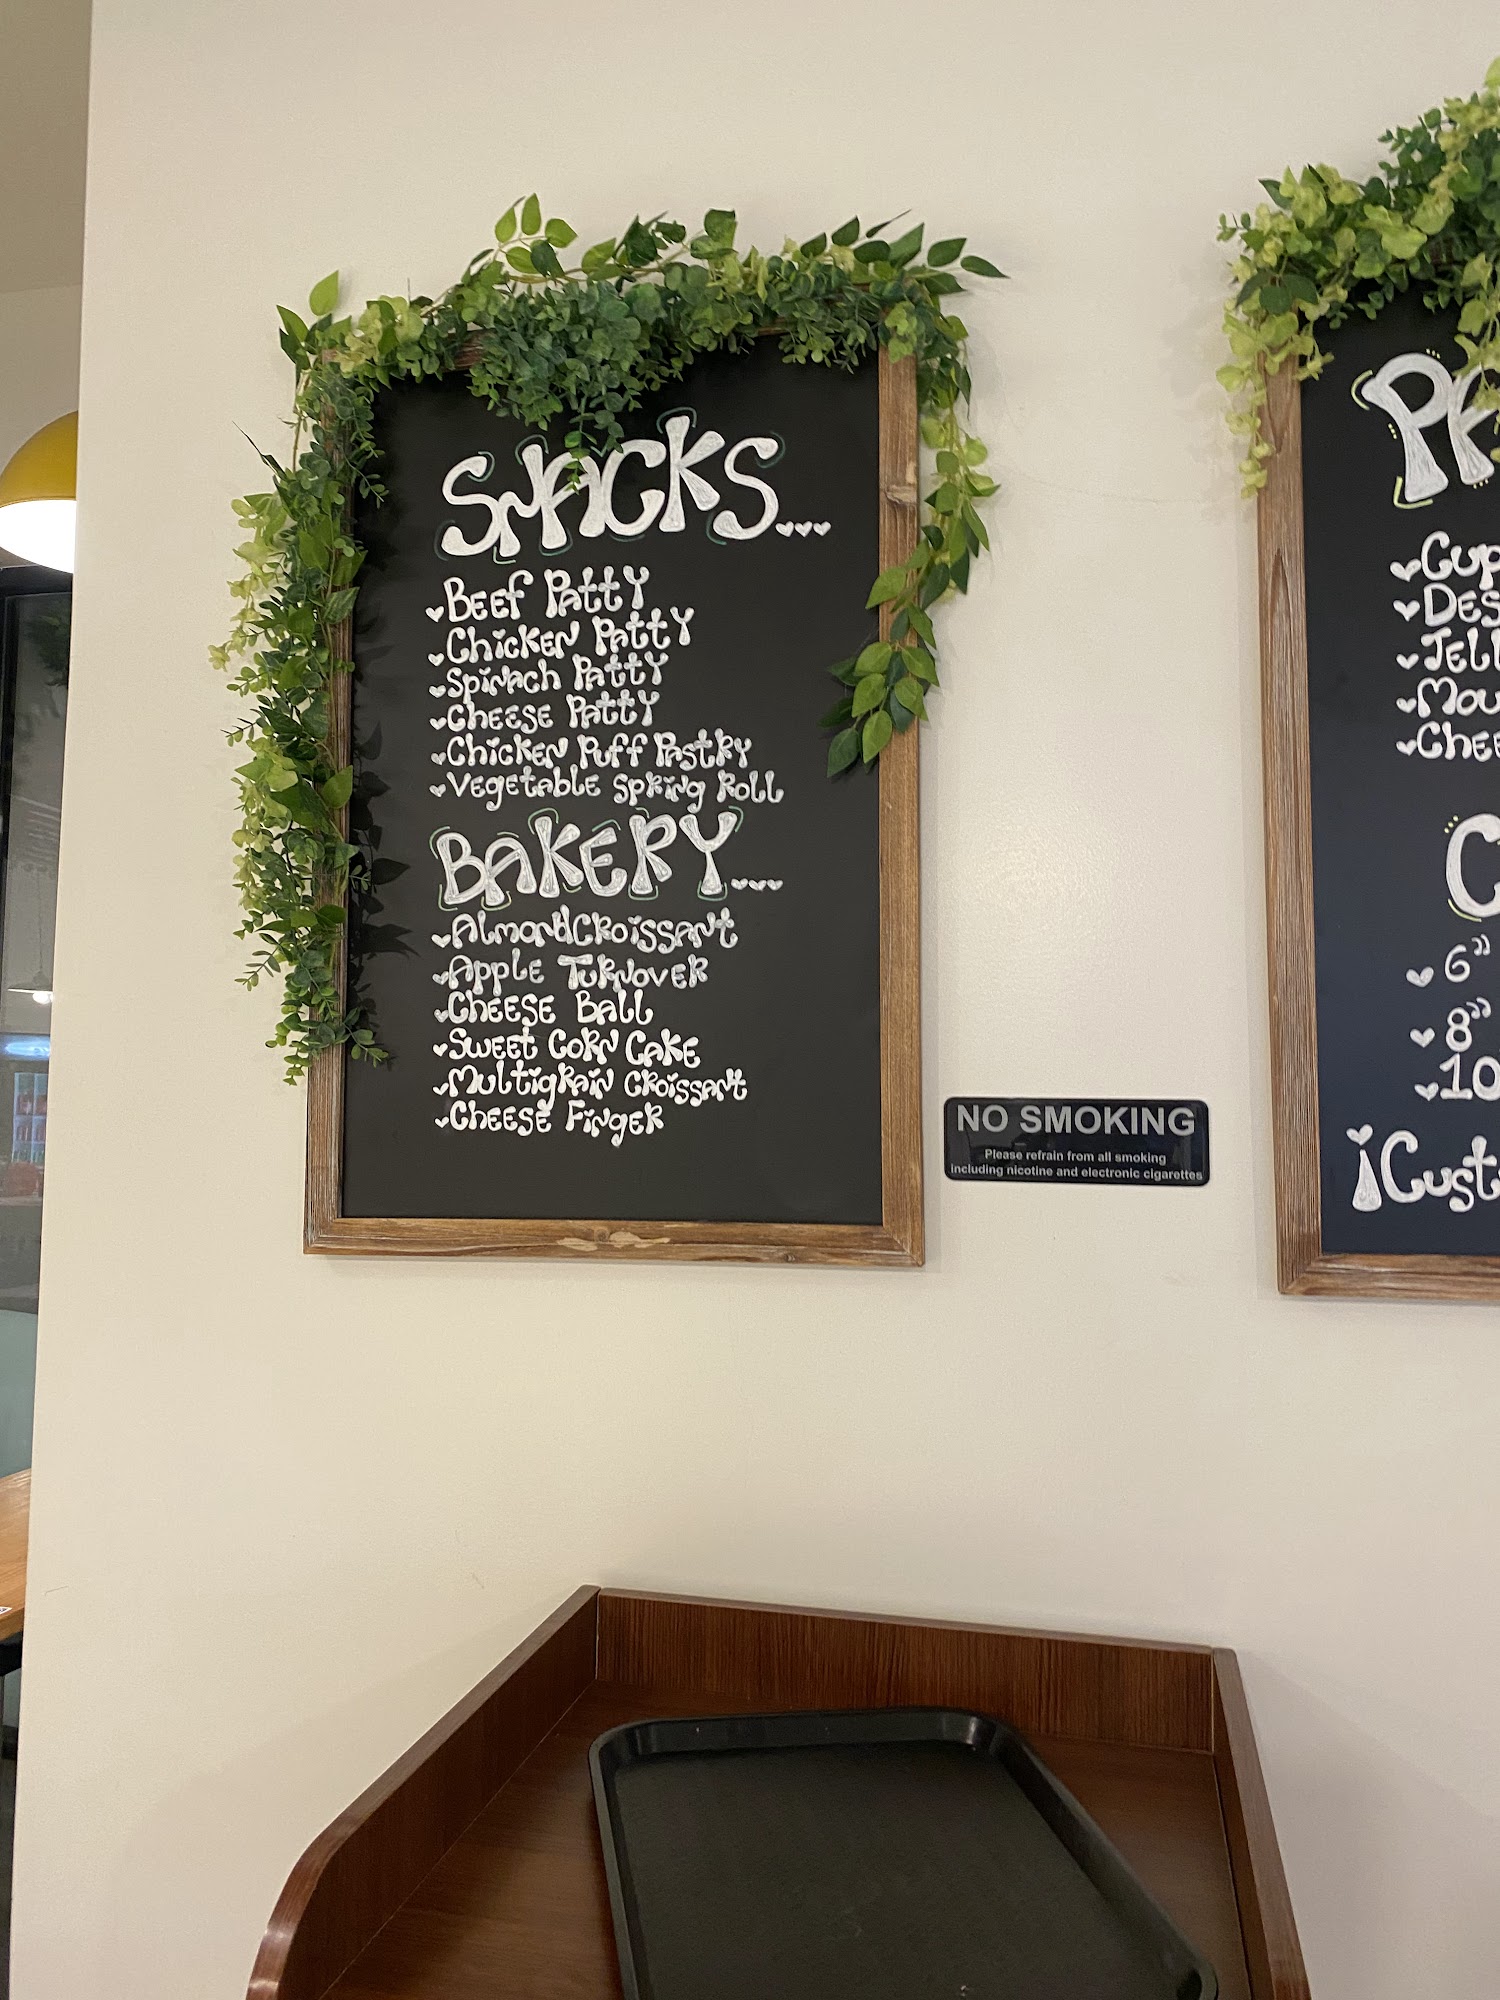 SNACKS...
Beef Patty
Chicken Patty
Spinach Patty
Cheese Patty
Chicken Puff Pastry
Vegetable Spring Roll
BAKERY....
Almond Croissant
Apple Turnover
Cheese Ball
Sweet Corn Cake
Multigrain Croissant
Cheese Finger
NO SMOKING
Please refrain from all smoking
including nicotine and electronic cigarettes
6"
8"
10